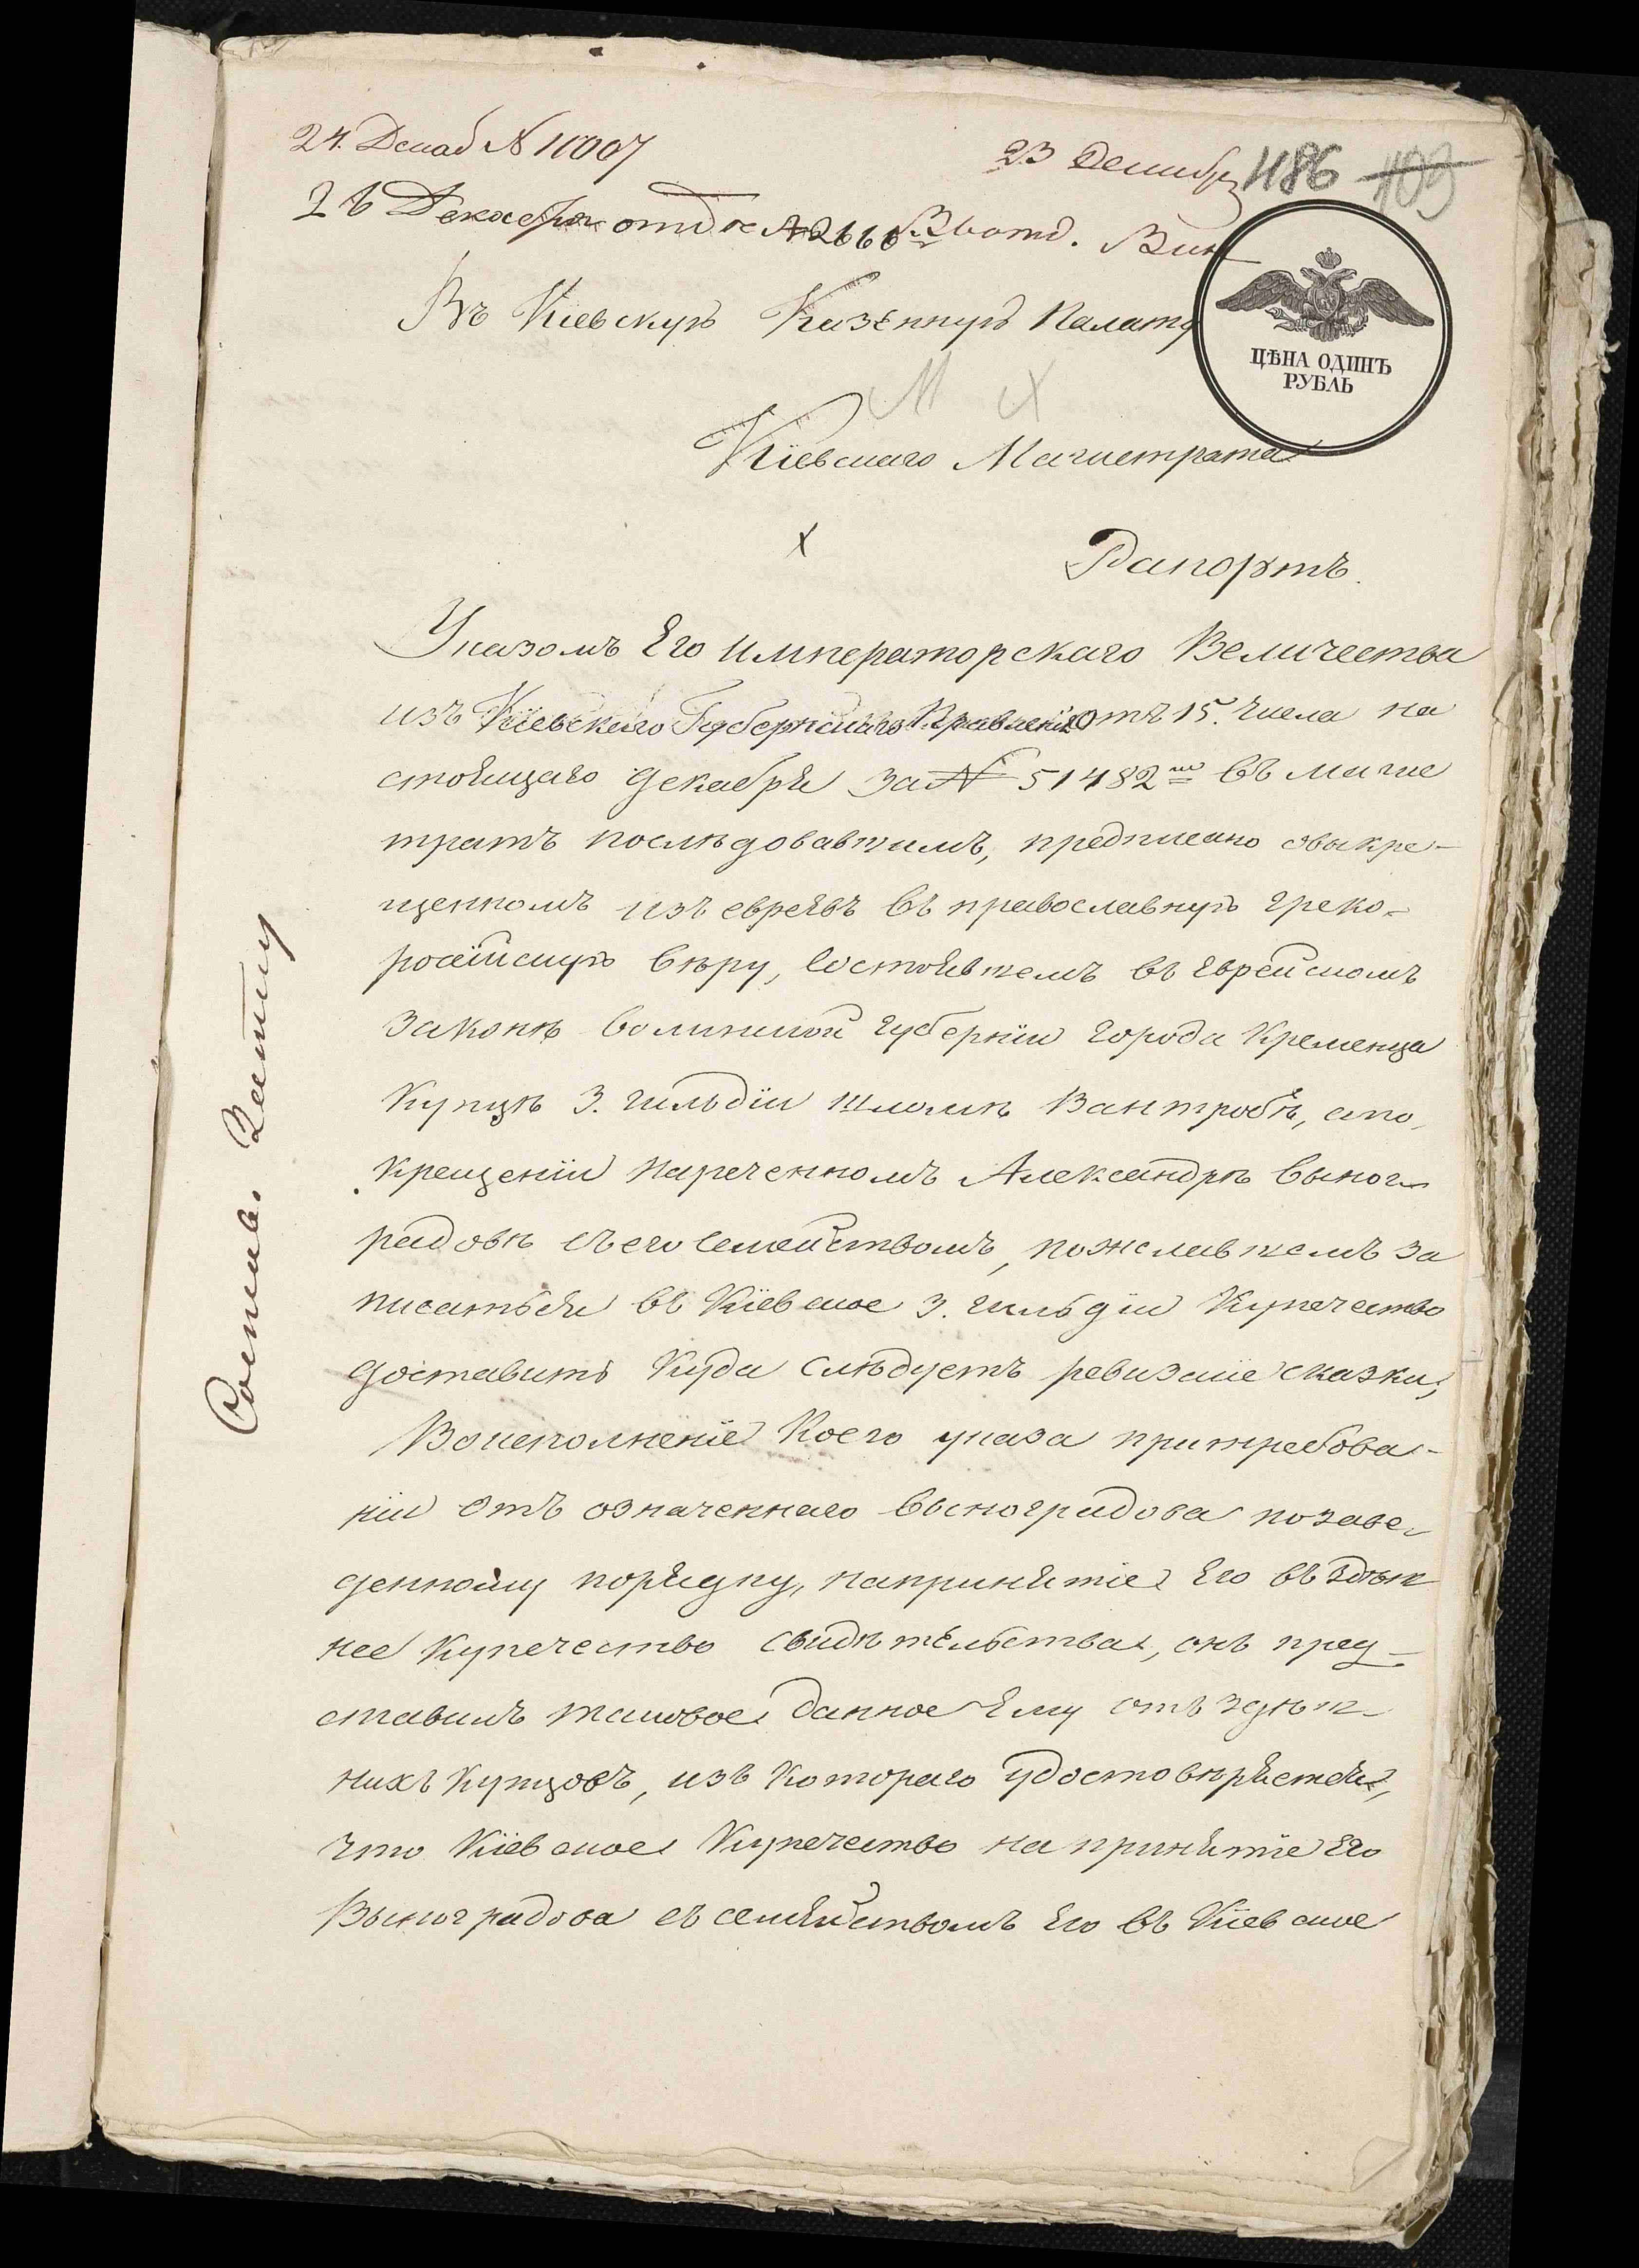 24. Декаб № 11007
23 Декабря
486 409
26 Декабря отдѣ № 2666
ЦѢНА ОДИНЪ
РУБЛЬ
Въ Кіевскую Казенную Палату
Кіевскаго Магистрата
Рапортъ.
Указомъ Его императорскаго Величества
изъ Кіевскаго Губернскаго Правленія отъ 15. числа на
стоящаго декабря за № 51482мъ въ магис
тратъ послѣдовавшимъ, предписано овыкре-
щенномъ изъ евреевъ въ православную греко-
россійскую вѣру, состоявшемъ въ еврейскомъ
законѣ волынской губерніи города Кременца
Купцѣ 3. гильдіи Шломѣ Вантробѣ, апо
крещеніи нареченномъ Александрѣ Выног-
радовѣ съ его семействомъ, пожелавшемъ за
писаться въ Кіевское 3. гильдіи Купечество
доставить Куда слѣдуетъ ревизскіе сказки;
Воисполненіе Коего указа притребова-
ніи отъ означеннаго Выноградова позаве-
денному порядку, напринятіе Его въ здѣш
нее Купечество свидѣтельства, онъ пред-
ставилъ таковое данное Ему отъ здѣш-
нихъ Купцовъ, изъ Котораго удостовѣряется,
что Кіевское Купечество на принятіе Его
Выноградова съ семействомъ Его въ Кіевское